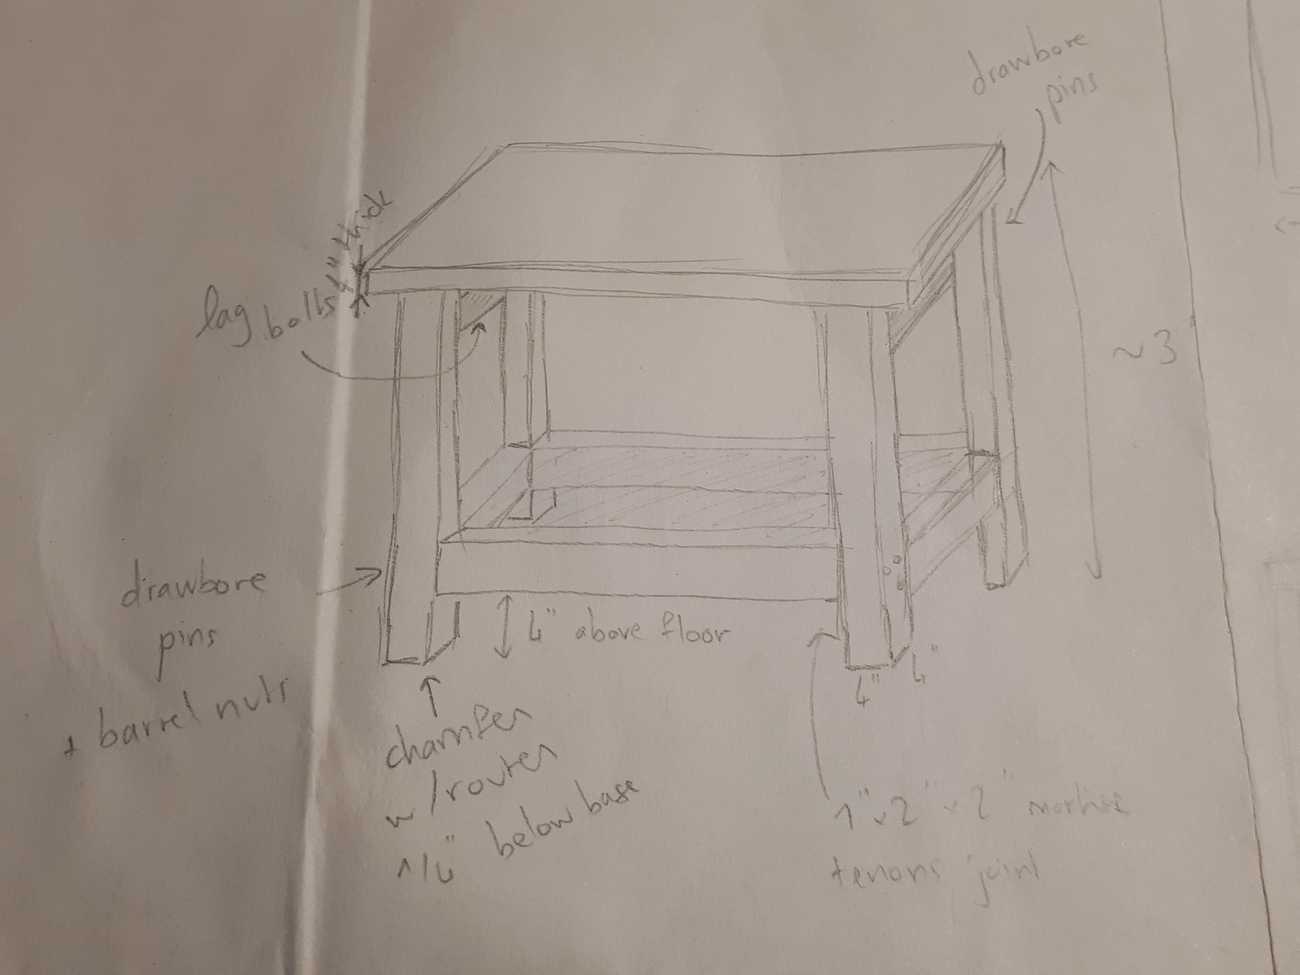 drawbore
pins
4" thick
lag bolts
~3'
drawbore
pins
+ barrel nuts
4" above floor
4"
4"
chamfer
w/router
1/4" below base
1"x2"x2" mortise
tenons joint